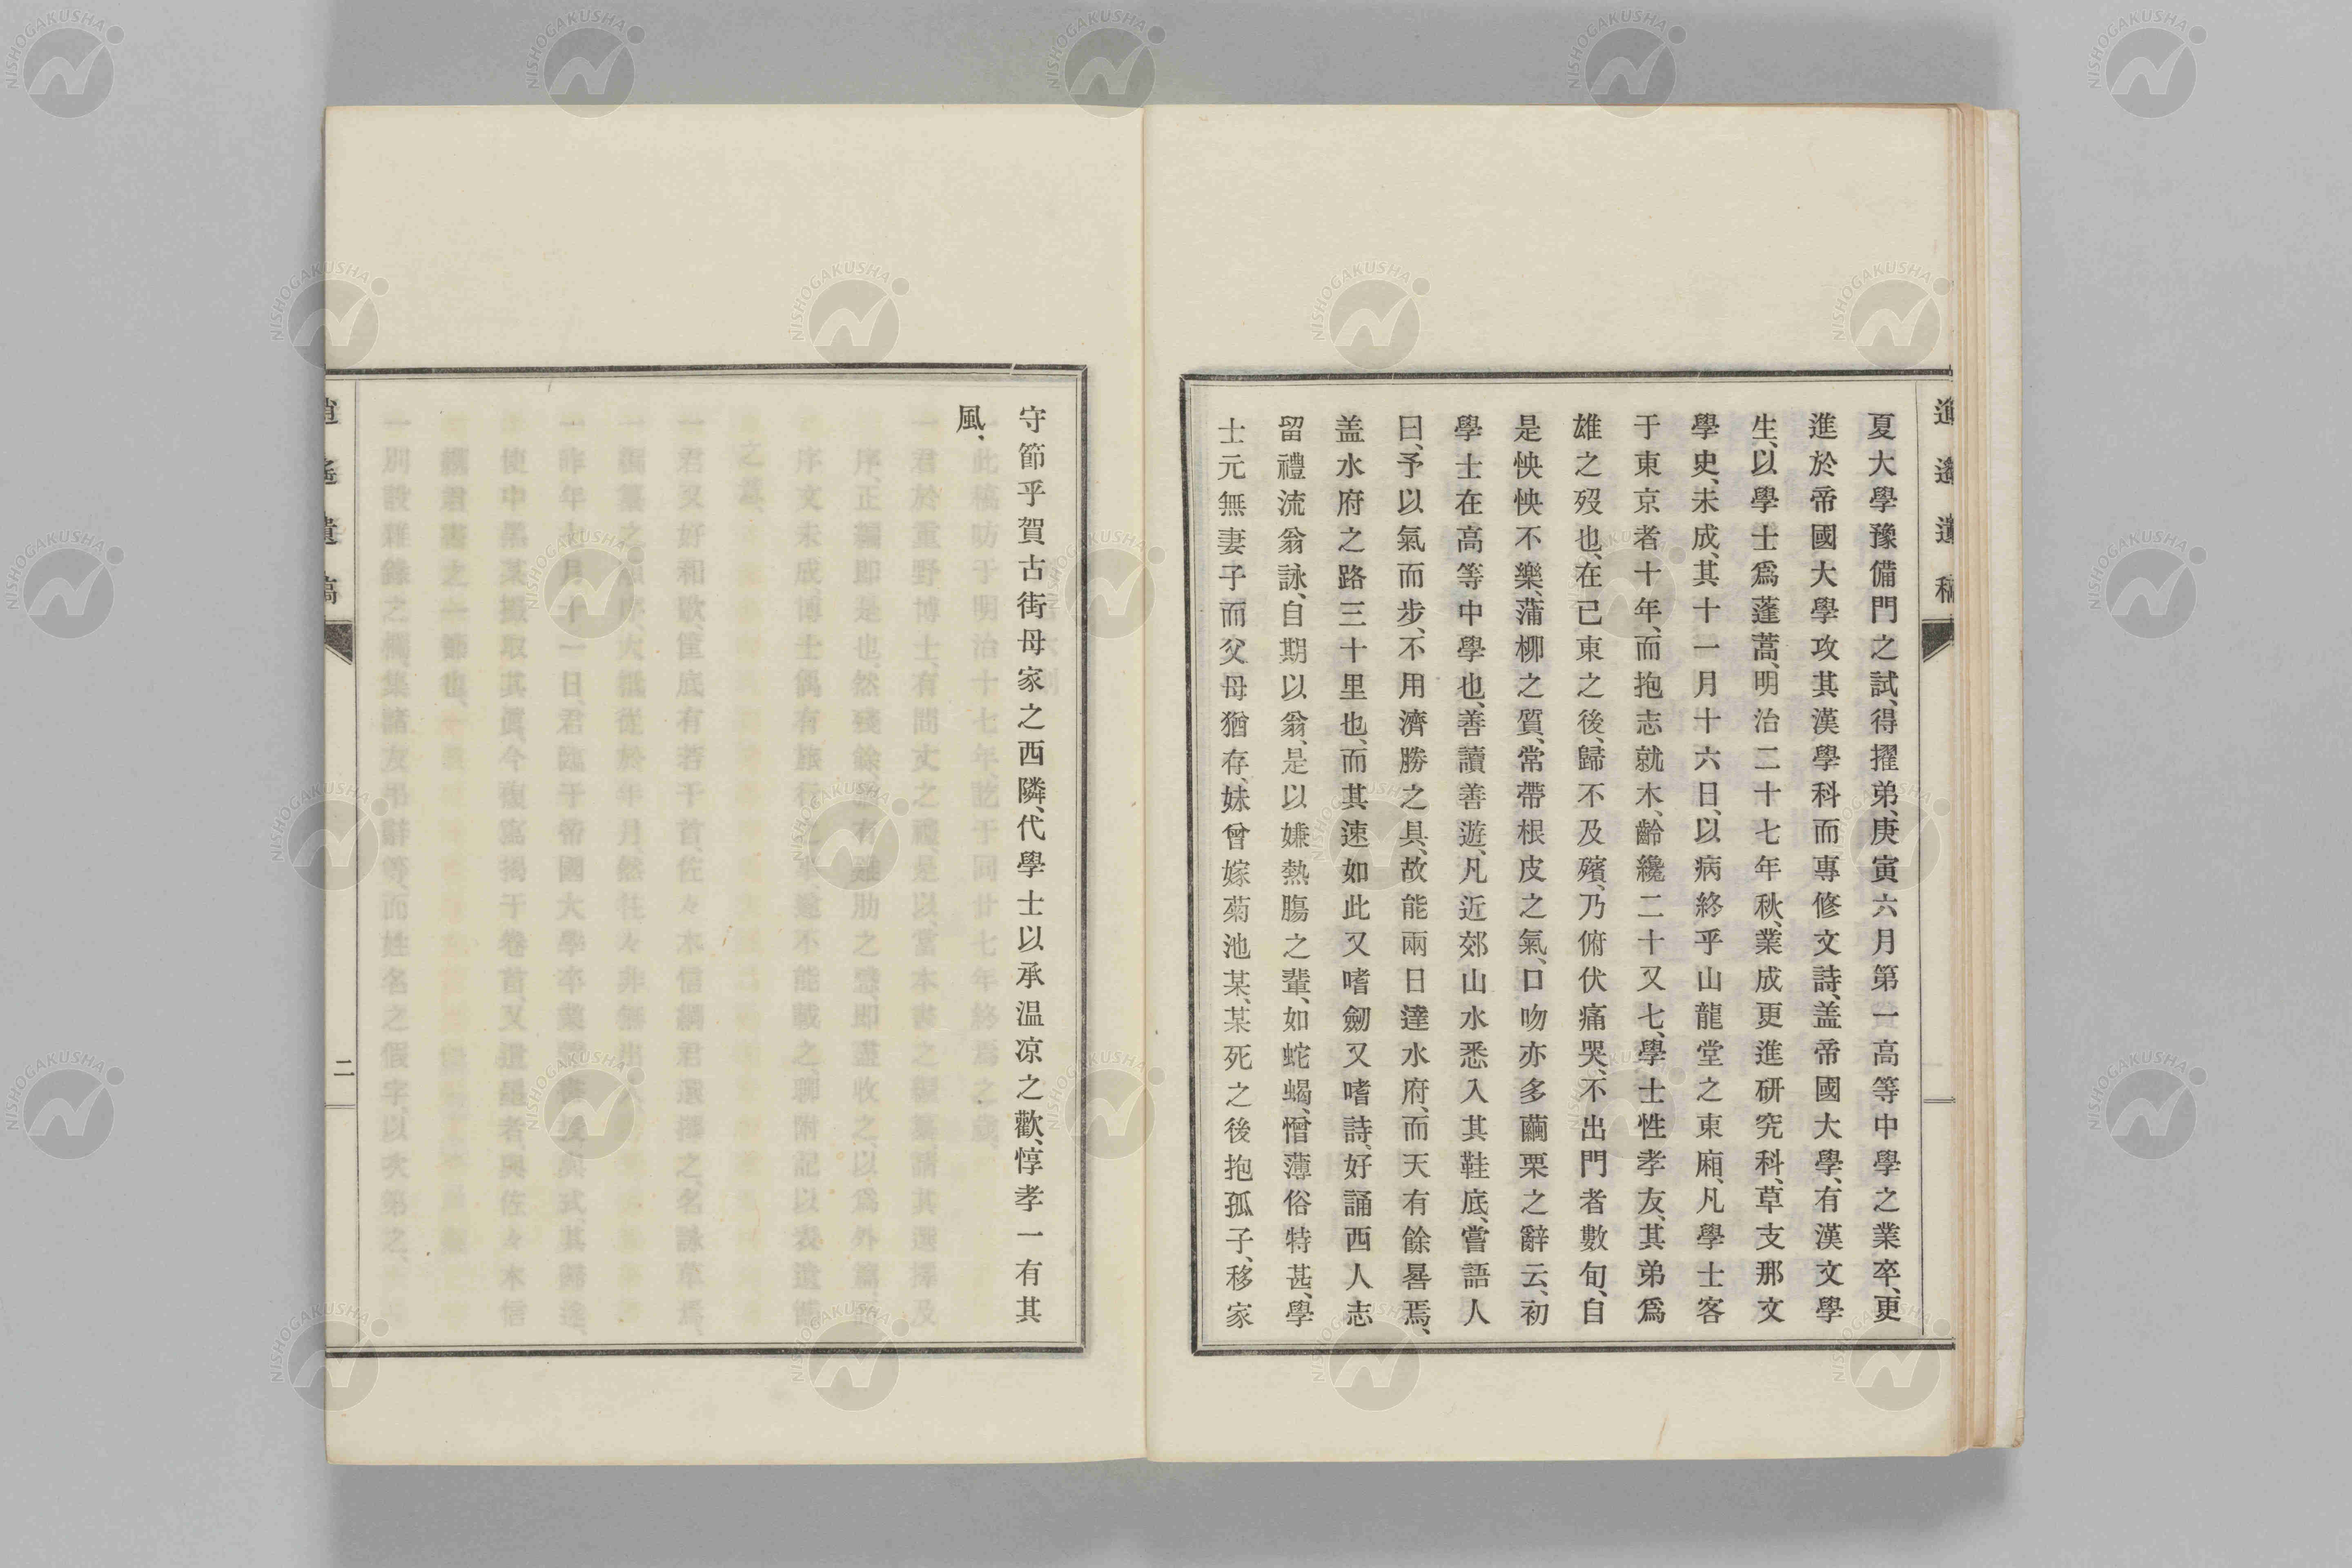 逍遙遺稿
夏大學豫備門之試、得擢弟、庚寅六月第一高等中學之業卒、更
進於帝國大學攻其漢學科而專修文詩、盖帝國大學、有漢文學
生、以學士爲蓬蒿、明治二十七年秋、業成更進研究科、草支那文
學史、未成、其十一月十六日、以病終乎山龍堂之東廂、凡學士客
于東京者十年、而抱志就木、齡纔二十又七、學士性孝友、其弟爲
雄之歿也、在已東之後、歸不及殯、乃俯伏痛哭、不出門者數旬、自
是怏怏不樂、蒲柳之質、常帶根皮之氣、口吻亦多繭栗之辭云、初
學士在高等中學也、善讀善遊、凡近郊山水悉入其鞋底、嘗語人
曰、予以氣而步、不用濟勝之具、故能兩日達水府、而天有餘晷焉、
盖水府之路三十里也、而其速如此又嗜劒又嗜詩、好誦西人志
留禮流翁詠、自期以翁、是以嫌熱膓之輩、如蛇蝎、憎薄俗特甚、學
士元無妻子而父母猶存、妹曾嫁菊池某、某死之後抱孤子、移家
守節乎賀古街母家之西隣、代學士以承温凉之歡、惇孝一有其
風、
逍遙遺稿
二
NISHOGAKUSHA